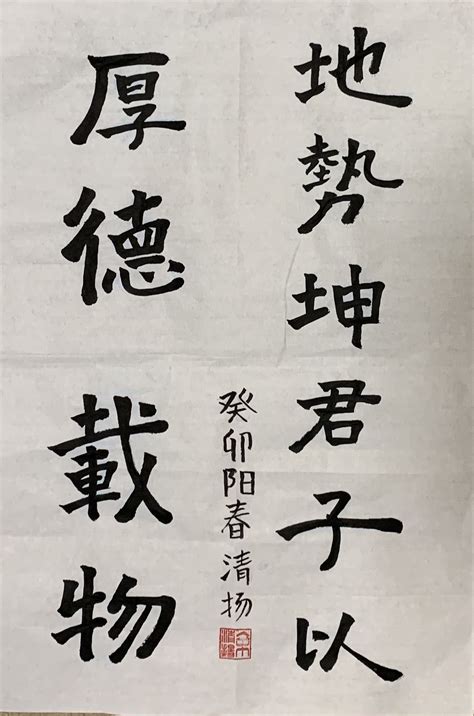 地勢坤君子以
厚德載物
癸卯阳春清扬